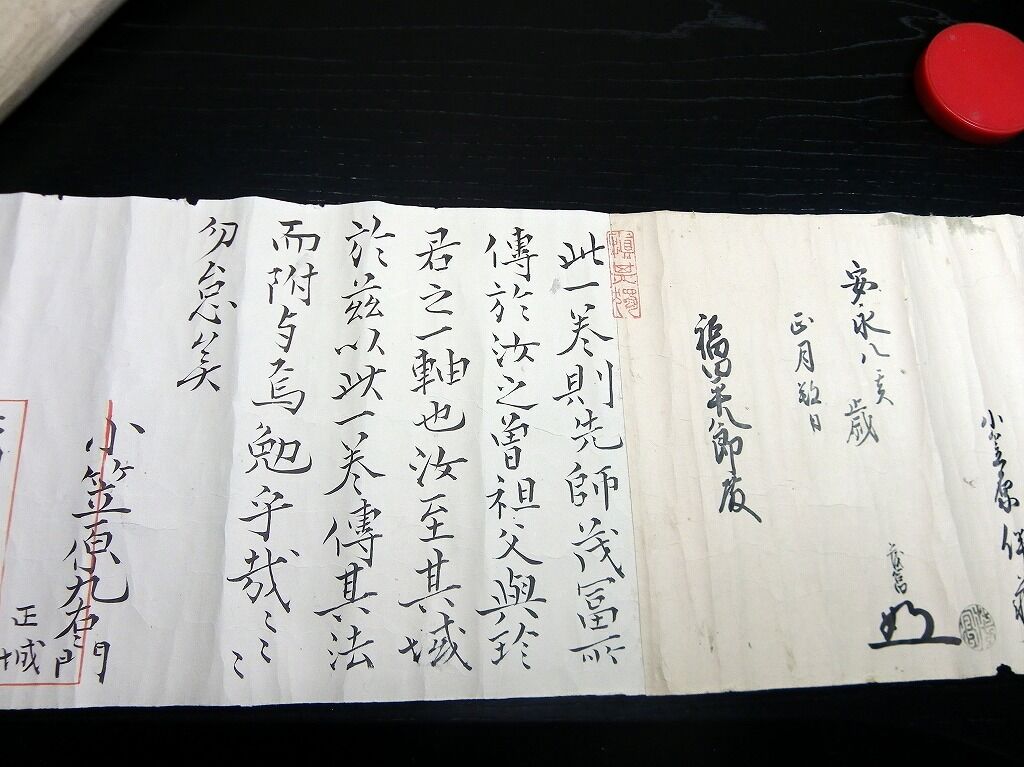 小笠原
茂冨
安永八亥歳
正月
福田
此一巻則先師茂冨所
傳於汝之曽祖父與珍
君之一軸也汝至其域
於茲以此一巻傳其法
而附与焉勉乎哉〻〻
勿怠矣
小笠原九右衛門
正城